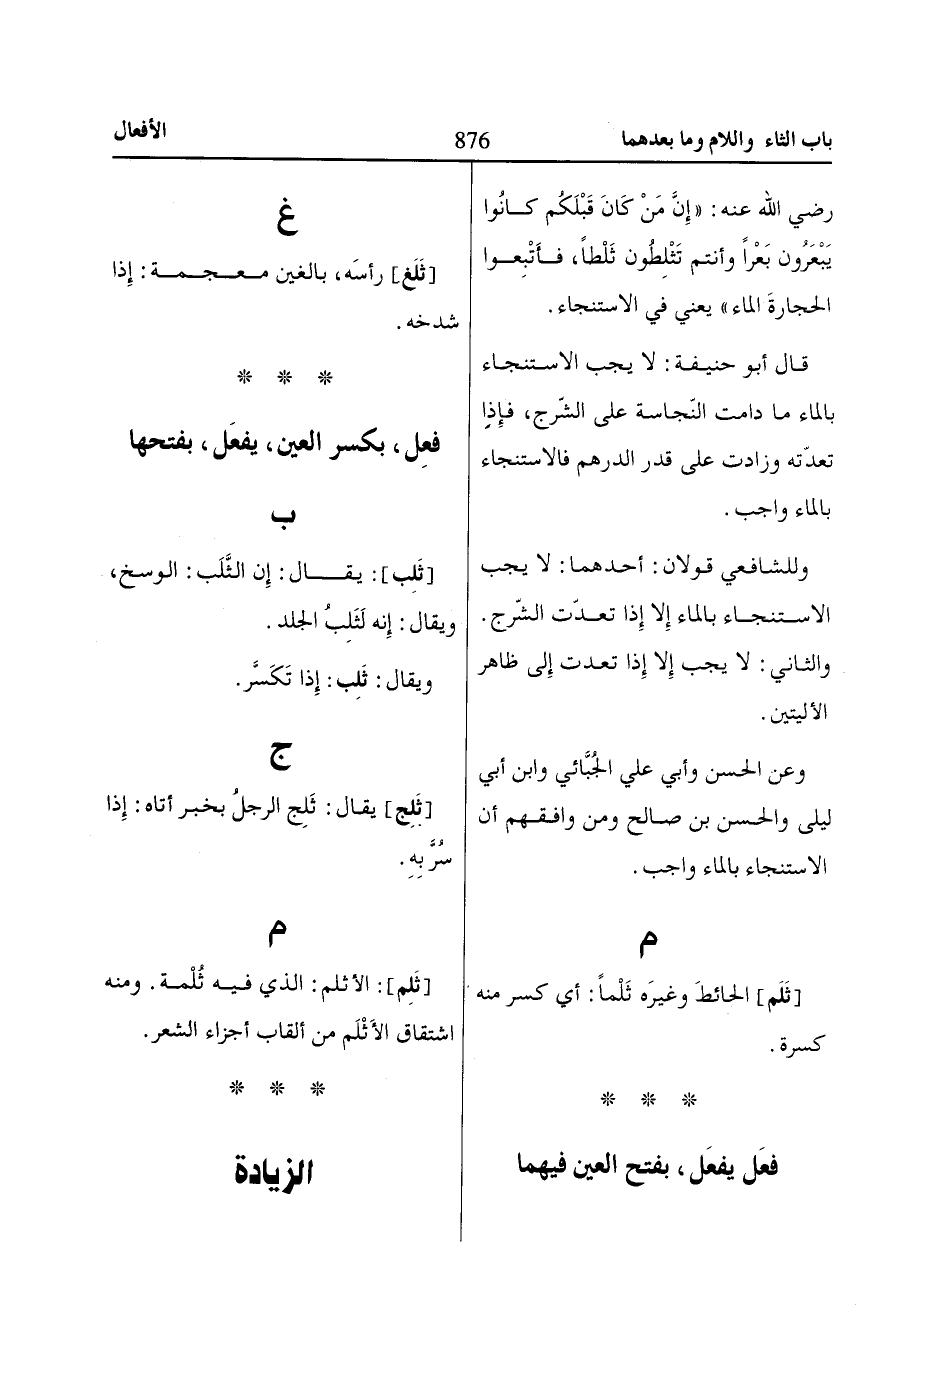 باب الثاء واللام وما بعدهما
876
الأفعال
رضي الله عنه: «إِنَّ مَنْ كَانَ قَبْلَكُم كانُوا
يَبْعَرُون بَعْراً وأنتم تَثْلِطُون ثَلْطاً، فأَتْبِعوا
الحجارةَ الماء» يعني في الاستنجاء.
قال أبو حنيفة: لا يجب الاستنجاء
بالماء ما دامت النّجاسة على الشّرج، فإِذا
تعدّته وزادت على قدر الدرهم فالاستنجاء
بالماء واجب.
وللشافعي قولان: أحدهما: لا يجب
الاستنجاء بالماء إلا إِذا تعدّت الشّرج.
والثاني: لا يجب إِلا إِذا تعدت إِلى ظاهر
الأليتين.
وعن الحسن وأبي علي الجُبَّائي وابن أبي
ليلى والحسن بن صالح ومن وافقهم أن
الاستنجاء بالماء واجب.
م
[ثَلَم] الحائطَ وغيرَه ثَلْماً: أي كسر منه
كسرة.
* * *
فعَل يفعَل، بفتح العين فيهما
غ
[ثَلَغ] رأسَه، بالغين معجمة: إِذا
شدخه.
* * *
فعِل، بكسر العين، يفعَل، بفتحها
ب
[ثَلِب]: يقال: إِن الثَّلَب: الوسخ،
ويقال: إِنه لَثَلِبُ الجلد.
ويقال: ثَلِب: إِذا تَكَسَّر.
ج
[ثَلِج] يقال: ثَلِج الرجلُ بخبر أتاه: إِذا
سُرَّ بِهِ.
م
[ثَلِم]: الأثلم: الذي فيه ثُلْمة. ومنه
اشتقاق الأَثْلَم من ألقاب أجزاء الشعر.
* * *
الزيادة